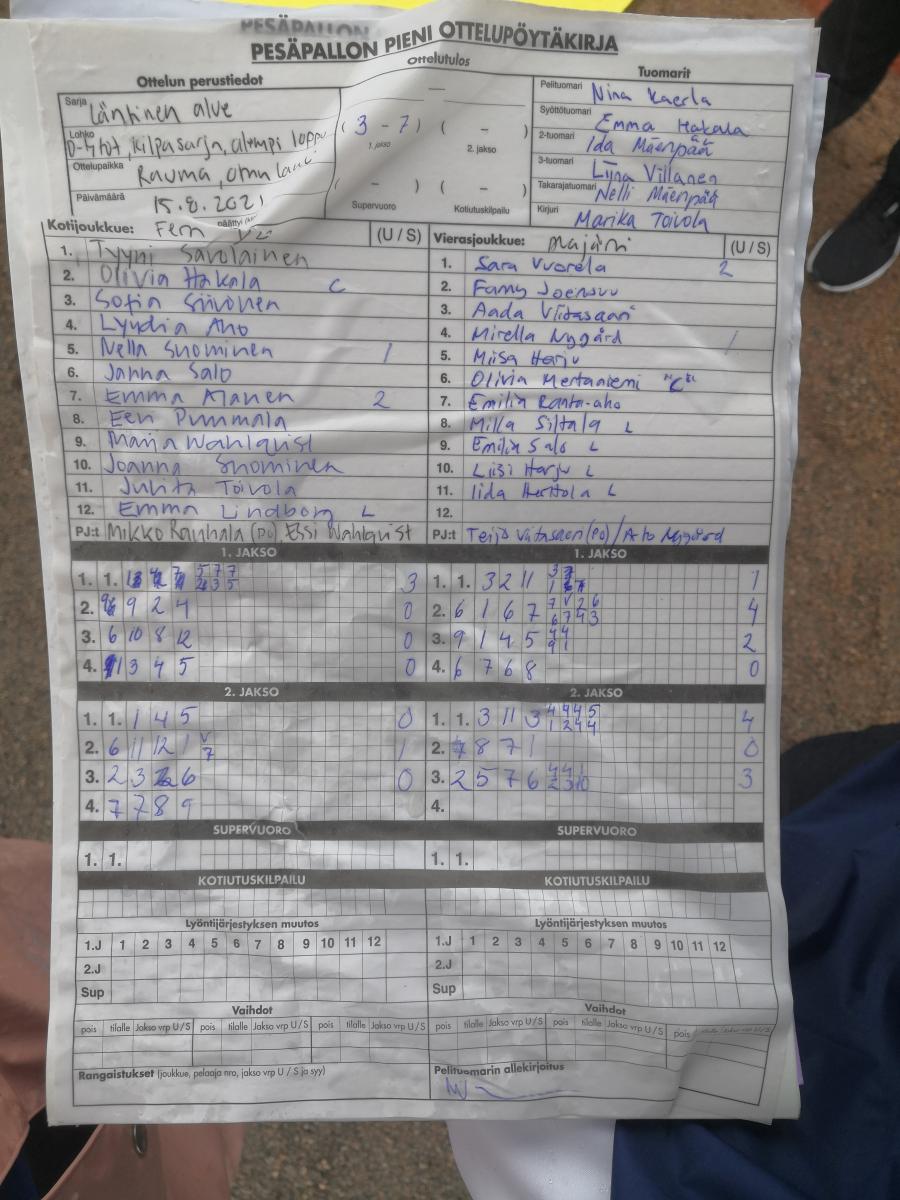 PESÄPALLON
PESÄPALLON PIENI OTTELUPÖYTÄKIRJA
Ottelun perustiedot
Ottelutulos
Tuomarit
Sarja Läntinen alue
Lohko D-tytöt, kilpasarja, alempi loppu
Ottelupaikka Rauma, otm
Päivämäärä 15.8.2021
päättyi
—
( 3 - 7 ) ( - )
1. jakso 2. jakso
( - ) ( - )
Supervuoro Kotiutuskilpailu
Pelituomari Nina Kaerla
Syöttötuomari Emma Hakala
2-tuomari Ida Mäenpää
3-tuomari Liina Villanen
Takarajatuomari Nelli Mäenpää
Kirjuri Marika Toivola
Kotijoukkue: Fern (U / S)
1. Tyyni Savolainen
2. Olivia Hakala C
3. Sofia Siivonen
4. Lyydia Aho
5. Nella Suominen 1
6. Janna Salo
7. Emma Ajanen 2
8. Eeri Pummala
9. Marja Wahlqvist
10. Joanna Suominen
11. Julita Toivola
12. Emma Lindborg L
PJ:t Mikko Rauhala (PO), Essi Wahlqvist
Vierasjoukkue: Majärni (U / S)
1. Sara Vuorela 2
2. Fanny Joensuu
3. Aada Viitasaari
4. Mirella Nygård 1
5. Miisa Harju
6. Olivia Mertaniemi "C"
7. Emilia Ranta-aho
8. Milla Siltala L
9. Emilia Salo L
10. Liisi Harju L
11. Iida Herttola L
12.
PJ:t Teijo Viitasaari (PO) / Arto Nygård
1. JAKSO
1. 1. 3
2. 9 2 4 0
3. 6 10 8 12 0
4. 1 3 4 5 0
2. JAKSO
1. 1. 1 4 5 0
2. 6 11 12 1 V 7 1
3. 2 3 6 0
4. 7 7 8 9
SUPERVUORO
1. 1.
KOTIUTUSKILPAILU
1. JAKSO
1. 1. 3 2 11 1
2. 6 1 6 7 7 V 2 6 6 7 4 3 4
3. 9 1 4 5 4 4 9 1 2
4. 6 7 6 8 0
2. JAKSO
1. 1. 3 11 3 4 4 4 5 1 2 4 4 4
2. 8 7 1 0
3. 2 5 7 6 4 4 1 2 3 10 3
4.
SUPERVUORO
1. 1.
KOTIUTUSKILPAILU
Lyöntijärjestyksen muutos
1.J 1 2 3 4 5 6 7 8 9 10 11 12
2.J
Sup
Vaihdot
pois tilalle Jakso vrp U / S pois tilalle Jakso vrp U / S pois tilalle Jakso vrp U / S
Rangaistukset (joukkue, pelaaja nro, jakso vrp U / S ja syy)
Lyöntijärjestyksen muutos
1.J 1 2 3 4 5 6 7 8 9 10 11 12
2.J
Sup
Vaihdot
pois tilalle Jakso vrp U / S pois tilalle Jakso vrp U / S pois tilalle Jakso vrp U / S
Pelituomarin allekirjoitus